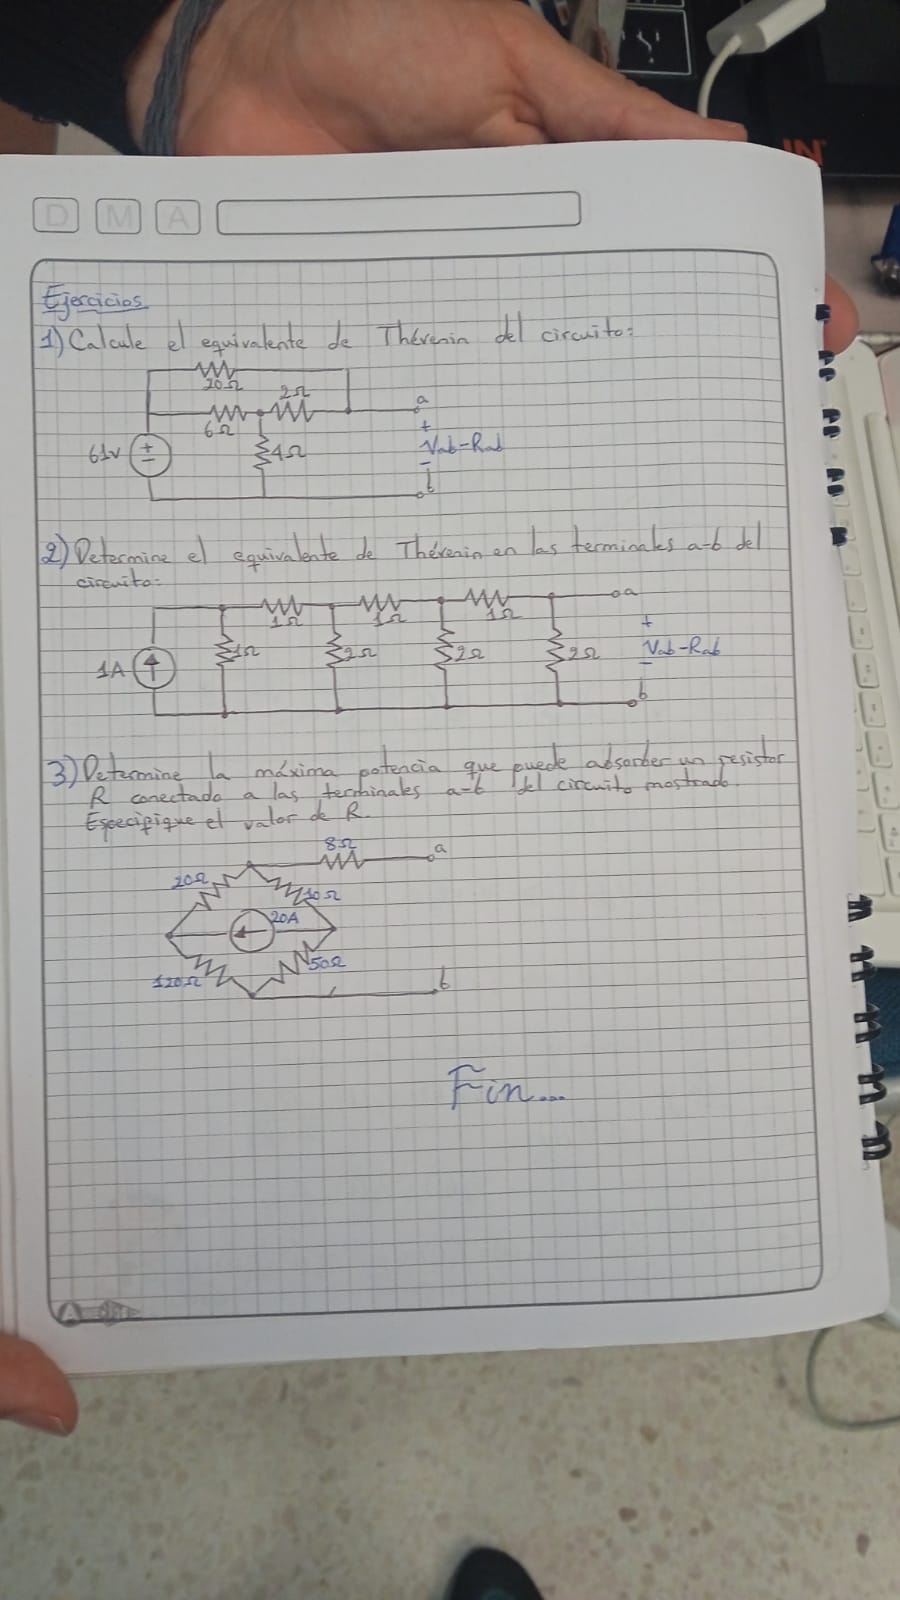 D M A
Ejercicios
1) Calcule el equivalente de Thévenin del circuito:
20Ω
2Ω
6Ω
a
+
61v
4Ω
Vab-Rab
-
b
2) Determine el equivalente de Thévenin en las terminales a-b del
circuito:
1Ω 1Ω 1Ω
a
+
1A
1Ω 2Ω 2Ω 2Ω
Vab-Rab
-
b
3) Determine la máxima potencia que puede absorber un resistor
R conectado a las terminales a-b del circuito mostrado.
Especifique el valor de R.
8Ω
a
20Ω
10Ω
20A
120Ω
50Ω
b
Fin...